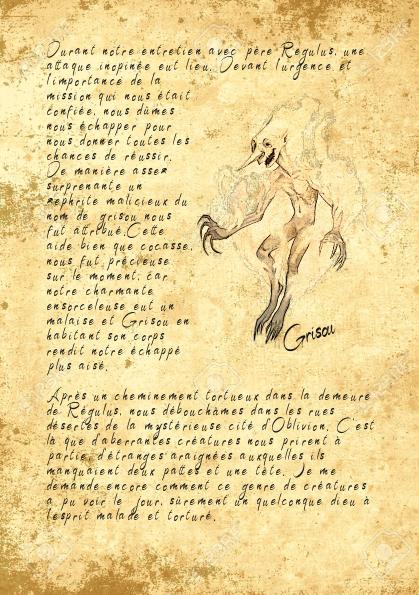 Durant notre entretien avec père Régulus, une
attaque inopinée eut lieu. Devant l'urgence et
l'importance de la
mission qui nous était
confiée, nous dûmes
nous échapper pour
nous donner toutes les
chances de réussir.
De manière assez
surprenante un
zéphrite malicieux du
nom de grisou nous
fut attribué.Cette
aide bien que cocasse,
nous fut précieuse
sur le moment, car
notre charmante
ensorceleuse eut un
malaise et Grisou en
habitant son corps
rendit notre échappé
plus aisé.
Grisou
Après un cheminement tortueux dans la demeure
de Régulus, nous débouchâmes dans les rues
désertes de la mystérieuse cité d'Oblivion. C'est
là que d'aberrantes créatures nous prirent à
partie, d'étranges araignées auxquelles ils
manquaient deux pattes et une tête. Je me
demande encore comment ce genre de créatures
a pu voir le jour, sûrement un quelconque dieu à
l'esprit malade et torturé.